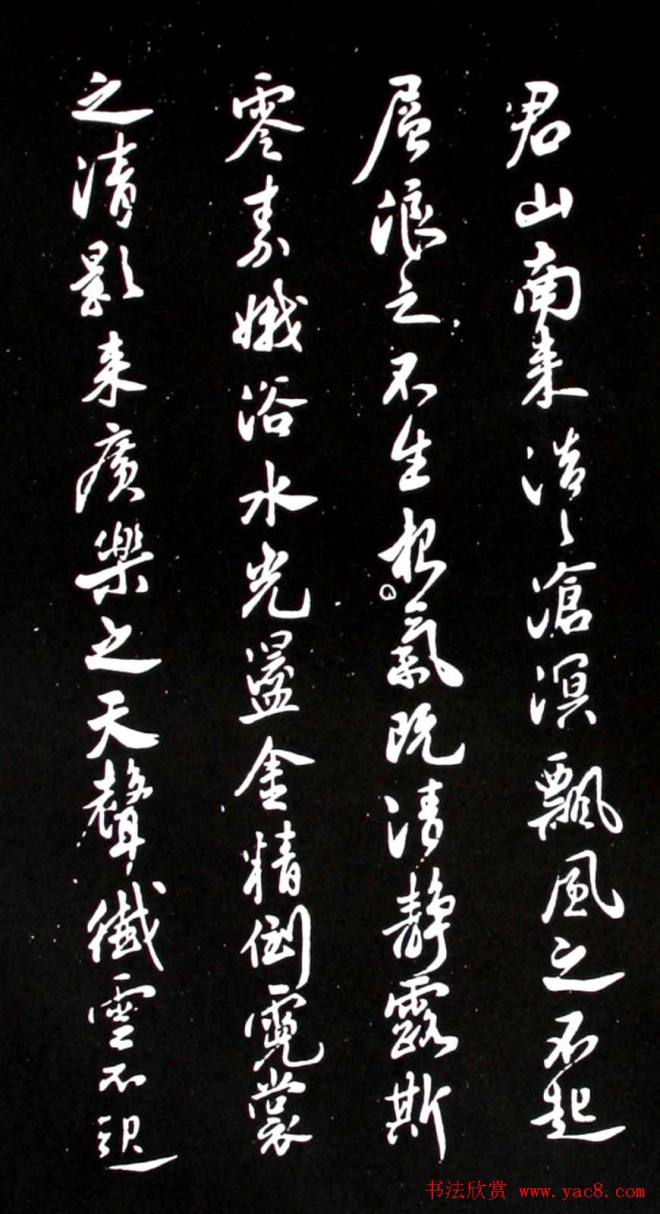 君山南来浩〻滄溟飄風之不起
層浪之不生氣既清靜露斯
零素娥浴水光盪金精倒霓裳
之清影来廣樂之天聲纖雲不
书法欣赏 www.yac8.com